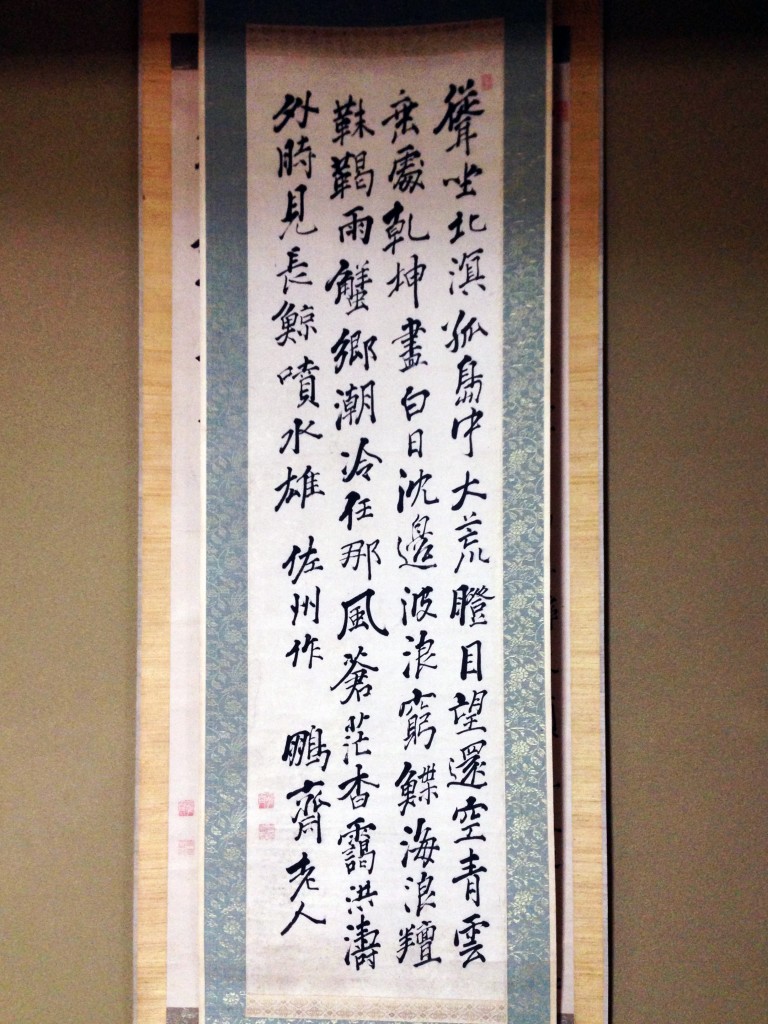 聳坐北溟孤島中大荒瞪目望還空青雲
垂處乾坤盡白日沈邊波浪窮鰈海浪羶
靺鞨雨蟹鄉潮冷任那風蒼茫杳靄洪濤
外時見長鯨噴水雄 佐州作 鵬齋老人